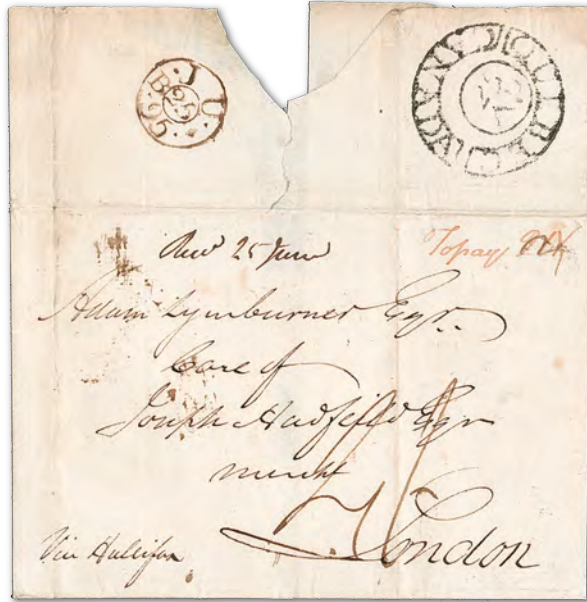 JU
25
B 95
QUEBEC CANADA
Recd 25 June
To pay
Adam Lymburner Esqr.
Care of
Joseph Hadfield Esqr
mercht
London
Via Hallifax